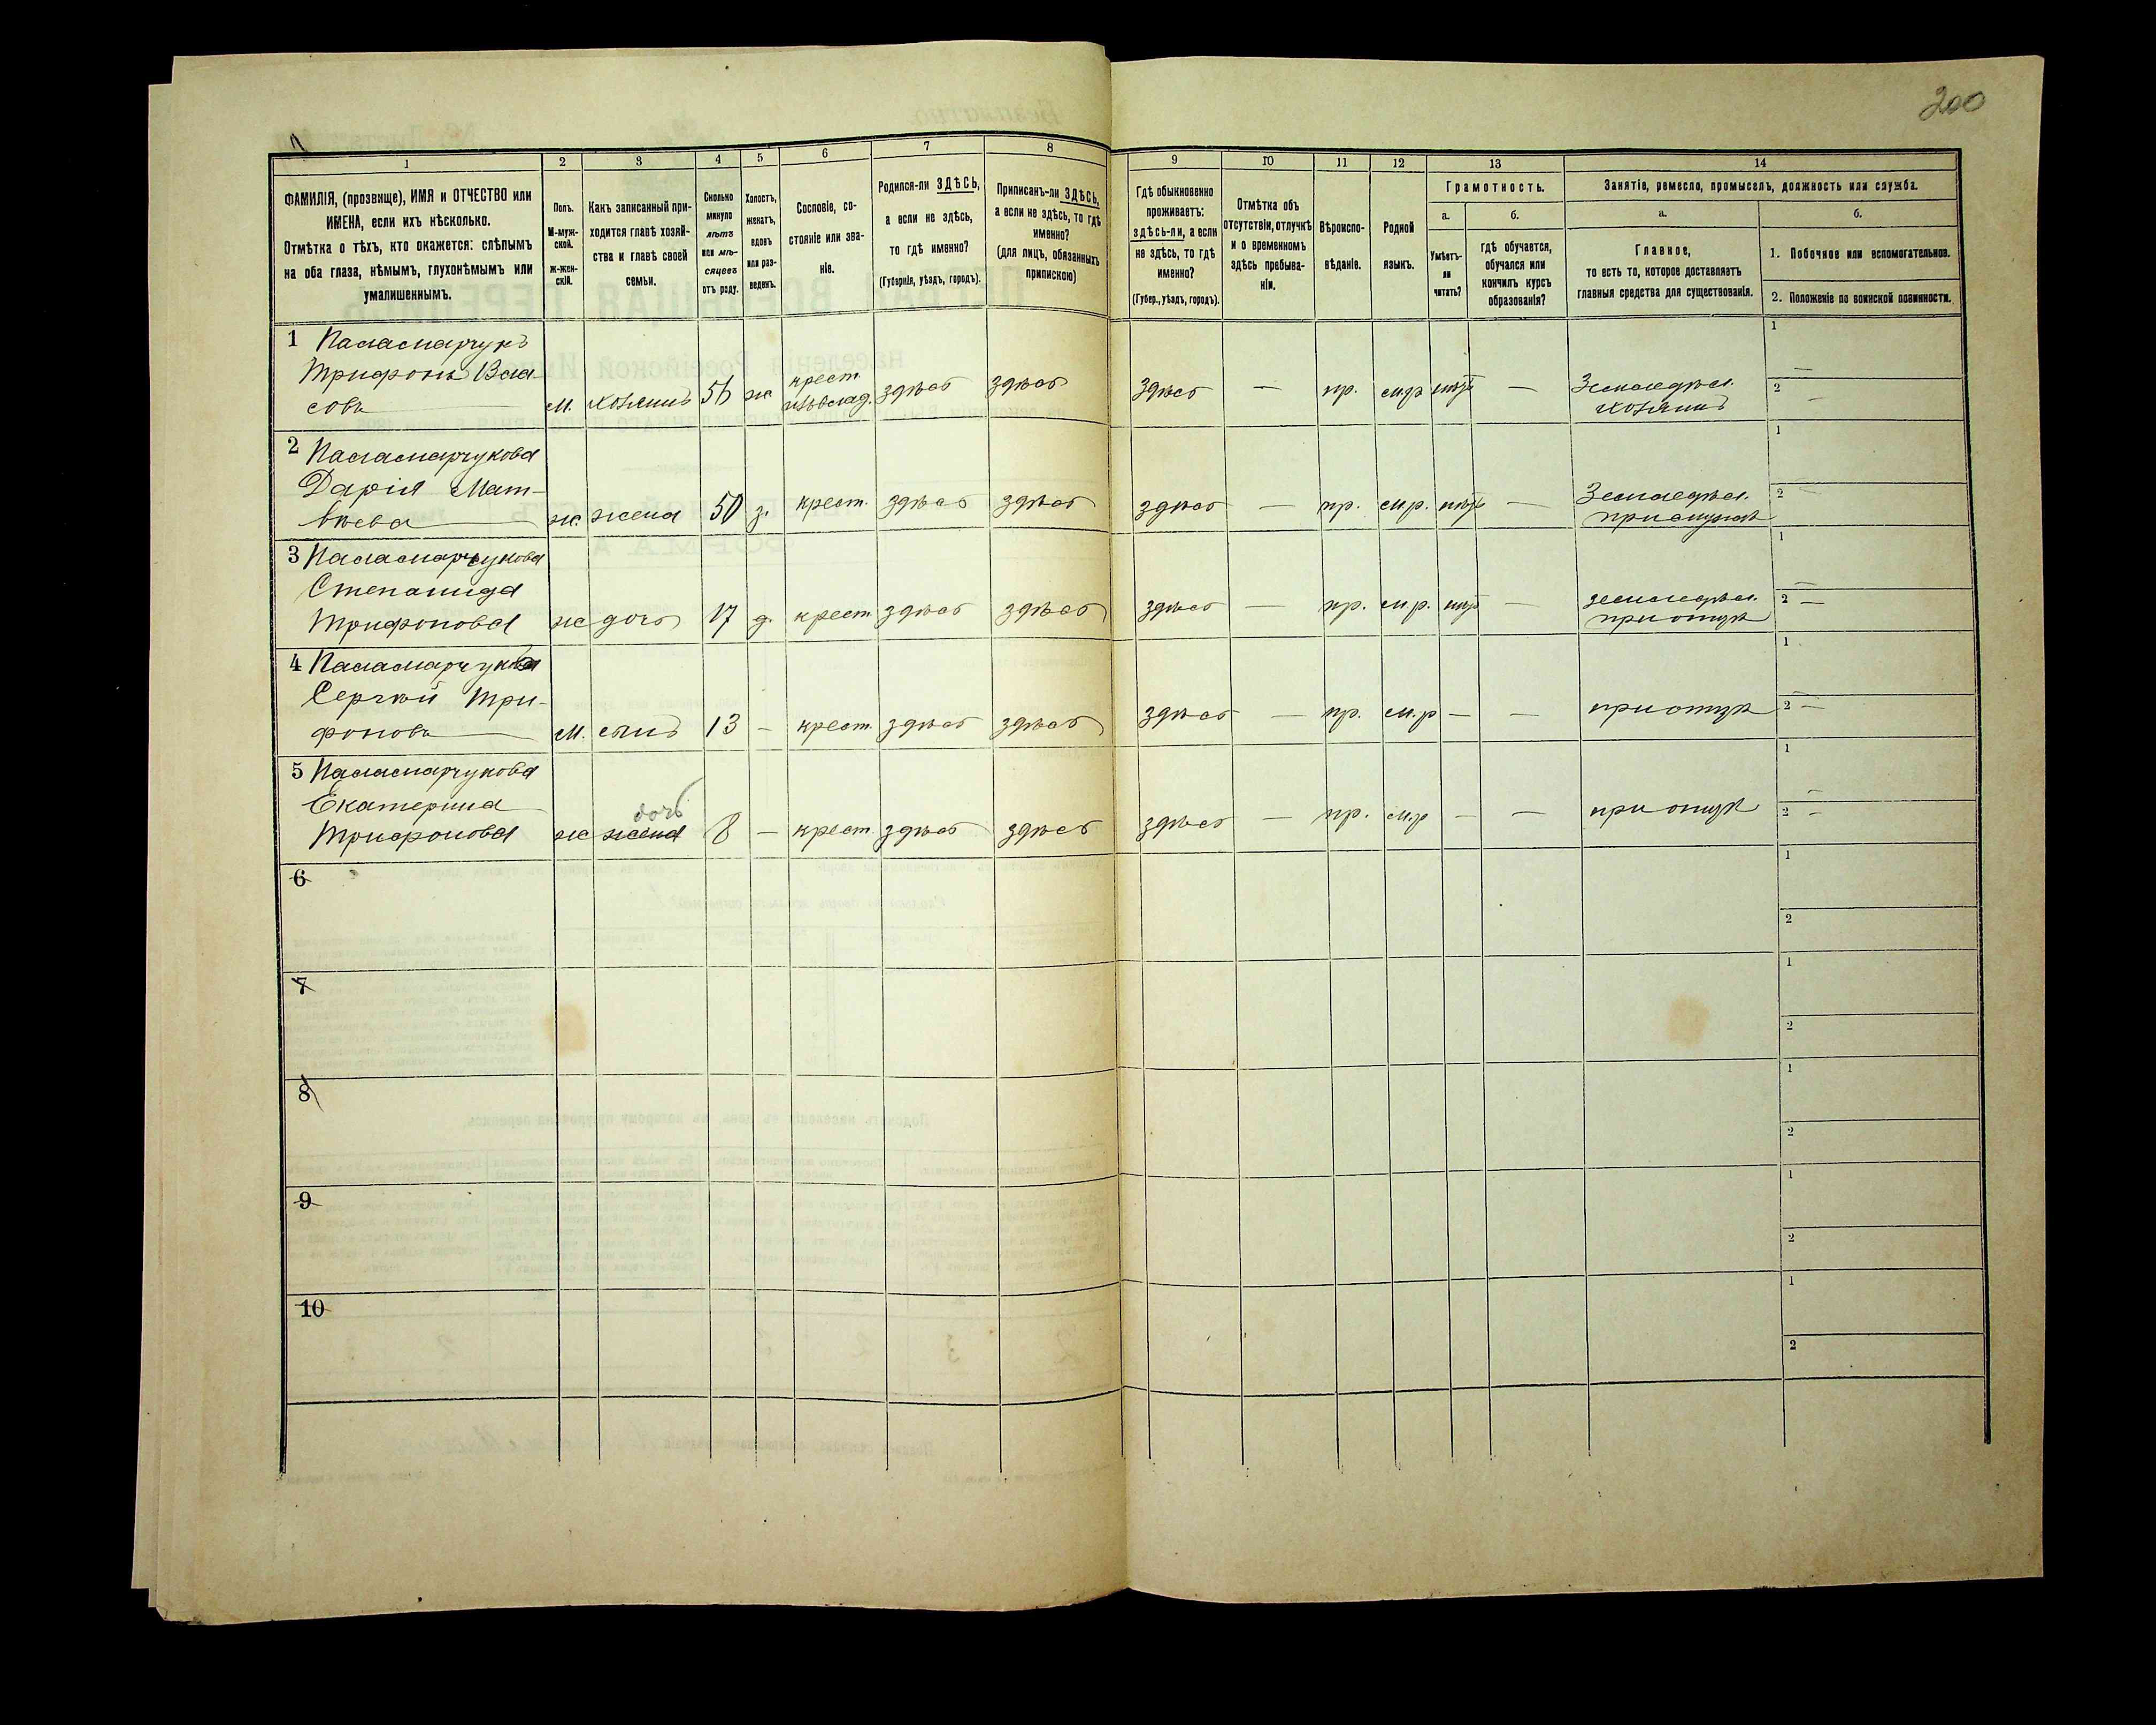 200
1 2 3 4 5 6 7 8 9 10 11 12 13 14
ФАМИЛІЯ, (прозвище), ИМЯ и ОТЧЕСТВО или
ИМЕНА, если ихъ нѣсколько.
Отмѣтка о тѣхъ, кто окажется: слѣпымъ
на оба глаза, нѣмымъ, глухонѣмымъ или
умалишеннымъ.
Полъ.
М-муж-
ской.
Ж-жен-
скій.
Какъ записанный при-
ходится главѣ хозяй-
ства и главѣ своей
семьи.
Сколько
минуло
лѣтъ
или мѣ-
сяцевъ
отъ роду.
Холостъ,
женатъ,
вдовъ
или раз-
веденъ.
Сословіе, со-
стояніе или зва-
ніе.
Родился-ли ЗДѢСЬ,
а если не здѣсь,
то гдѣ именно?
(Губернія, уѣздъ, городъ).
Приписанъ-ли ЗДѢСЬ,
а если не здѣсь, то гдѣ
именно?
(для лицъ, обязанныхъ
припискою)
Гдѣ обыкновенно
проживаетъ:
здѣсь-ли, а если
не здѣсь, то гдѣ
именно?
(Губер., уѣздъ, городъ).
Отмѣтка объ
отсутствіи, отлучкѣ
и о временномъ
здѣсь пребыва-
ніи.
Вѣроиспо-
вѣданіе.
Родной
языкъ.
Грамотность.
а.
Умѣетъ-
ли
читать?
б.
гдѣ обучается,
обучался или
кончилъ курсъ
образованія?
Занятіе, ремесло, промыселъ, должность или служба.
а.
Главное,
то есть то, которое доставляетъ
главныя средства для существованія.
б.
1. Побочное или вспомогательное.
2. Положеніе по воинской повинности.
1 Паламарчукъ
Трифонъ Вла-
совъ
м. хозяинъ 56 ж крест.
изъ влад. здѣсь здѣсь здѣсь — пр. м.р нѣтъ — Земледѣл.
хозяинъ
1 —
2 —
2 Паламарчукова
Дарія Мат-
вѣева
ж. жена 50 з. крест. здѣсь здѣсь здѣсь — пр. м.р. нѣтъ — Земледѣл.
при мужѣ
1
2 —
3 Паламарчукова
Степанида
Трифонова
ж дочь 17 д. крест здѣсь здѣсь здѣсь — пр. м.р. нѣтъ — земледѣл.
при отцѣ
1 —
2 —
4 Паламарчуковъ
Сергѣй Три-
фоновъ
м. сынъ 13 — крест. здѣсь здѣсь здѣсь — пр. м.р — — при отцѣ
1 —
2 —
5 Паламарчукова
Екатерина
Трифонова
дочь
ж жена 8 — крест. здѣсь здѣсь здѣсь — пр. м.р — — при отцѣ
1 —
2 —
6
1
2
7
1
2
8
1
2
9
1
2
10
1
2